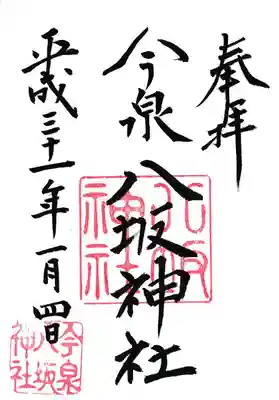 奉拝
今泉八坂神社
平成三十一年一月四日
八坂神社
今泉八坂神社